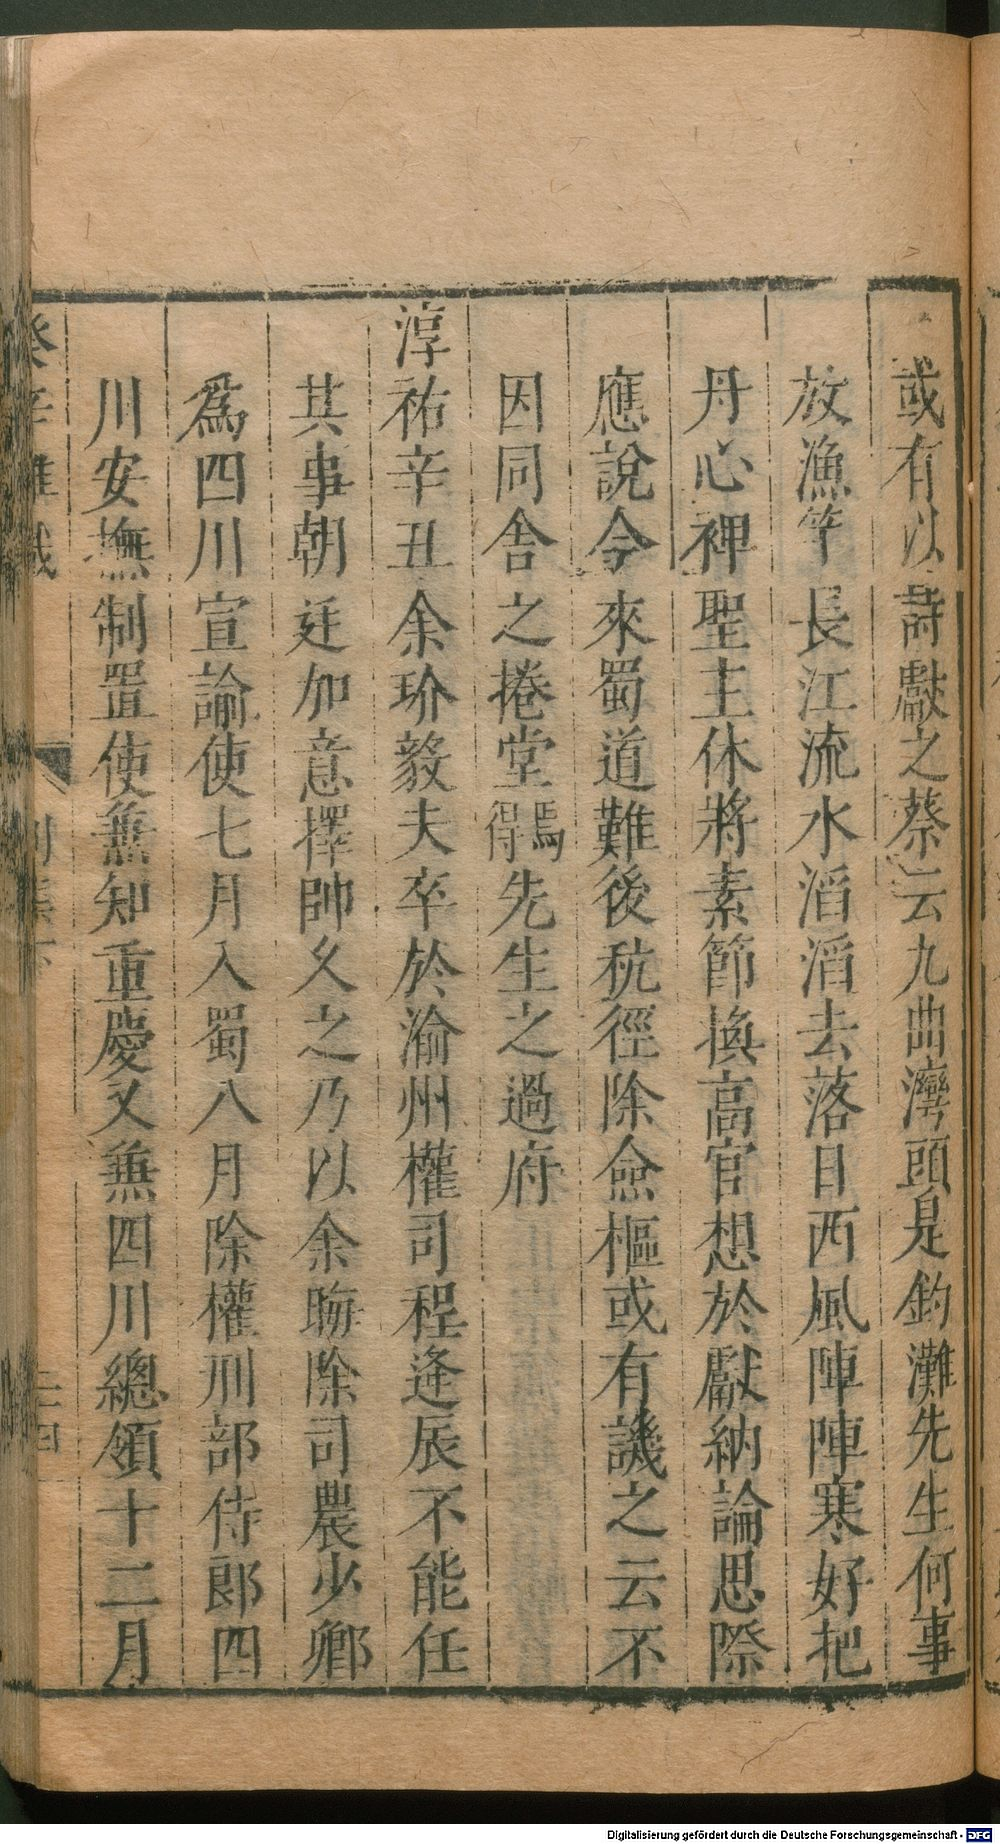 或有以詩獻之蔡云九曲灣頭是釣灘先生何事
放漁竿長江流水滔滔去落日西風陣陣寒好把
丹心裨聖主休將素節換高官想於獻納論思際
應說今來蜀道難後秔徑除僉樞或有譏之云不
因同舍之捲堂焉得先生之過府
淳祐辛丑余玠毅夫卒於渝州權司程逄辰不能任
其事朝廷加意擇帥久之乃以余晦除司農少卿
爲四川宣諭使七月入蜀八月除權刑部侍郎四
川安撫制置使兼知重慶又兼四川總領十二月
癸辛雜識
別集下
二四
Digitalisierung gefördert durch die Deutsche Forschungsgemeinschaft - DFG